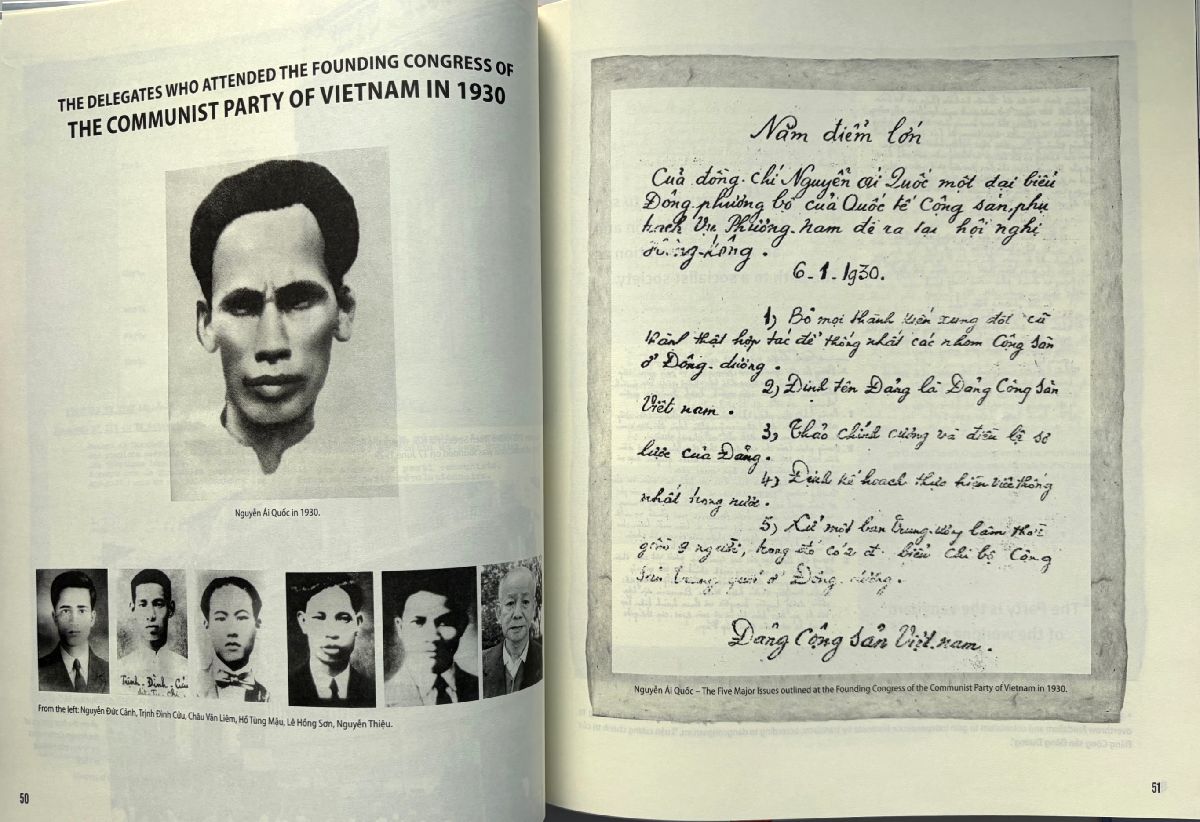 THE DELEGATES WHO ATTENDED THE FOUNDING CONGRESS OF
THE COMMUNIST PARTY OF VIETNAM IN 1930
Nguyễn Ái Quốc in 1930.
Trịnh - Đình - Cửu
From the left: Nguyễn Đức Cảnh, Trịnh Đình Cửu, Châu Văn Liêm, Hồ Tùng Mậu, Lê Hồng Sơn, Nguyễn Thiệu.
50
Năm điểm lớn
Của đồng chí Nguyễn ái Quốc một đại biểu
Đông phương bộ của Quốc tế Cộng sản, phụ
trách Vụ Phương-nam đề ra tại hội nghị
6-1-1930.
1) Bỏ mọi thành kiến xung đột cũ
thành thật hợp tác để thống nhất các nhóm Cộng sản
ở Đông-dương.
2) Định tên Đảng là Đảng Cộng sản
Việt nam.
3) Thảo chính cương và điều lệ sơ
lược của Đảng.
4) Định kế hoạch thực hiện việc thống
nhất trong nước.
5) Cử một ban Trung ương lâm thời
gồm 9 người, trong đó có 2 đ. biểu chi bộ Cộng
sản ở Đông-dương.
Đảng Cộng sản Việt-nam.
Nguyễn Ái Quốc – The Five Major Issues outlined at the Founding Congress of the Communist Party of Vietnam in 1930.
51